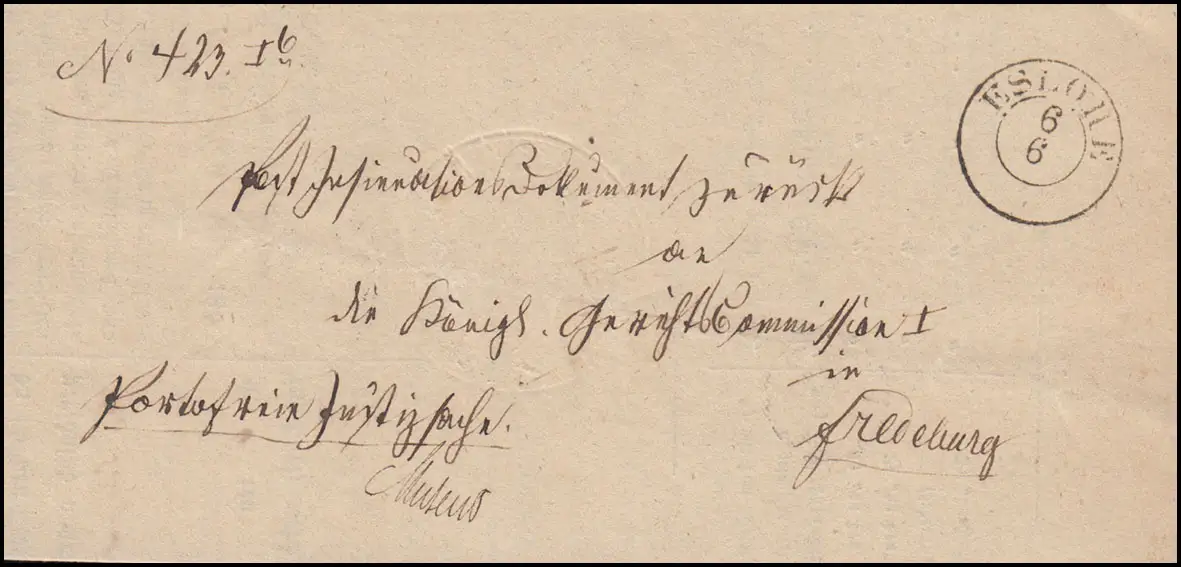 No 423. Ib.
ESLOHE
6
6
Post Insinuations Dokument zurück
an
die Königl. Gerichts Commission I
in
Fredeburg
Portofreie Justizsache.